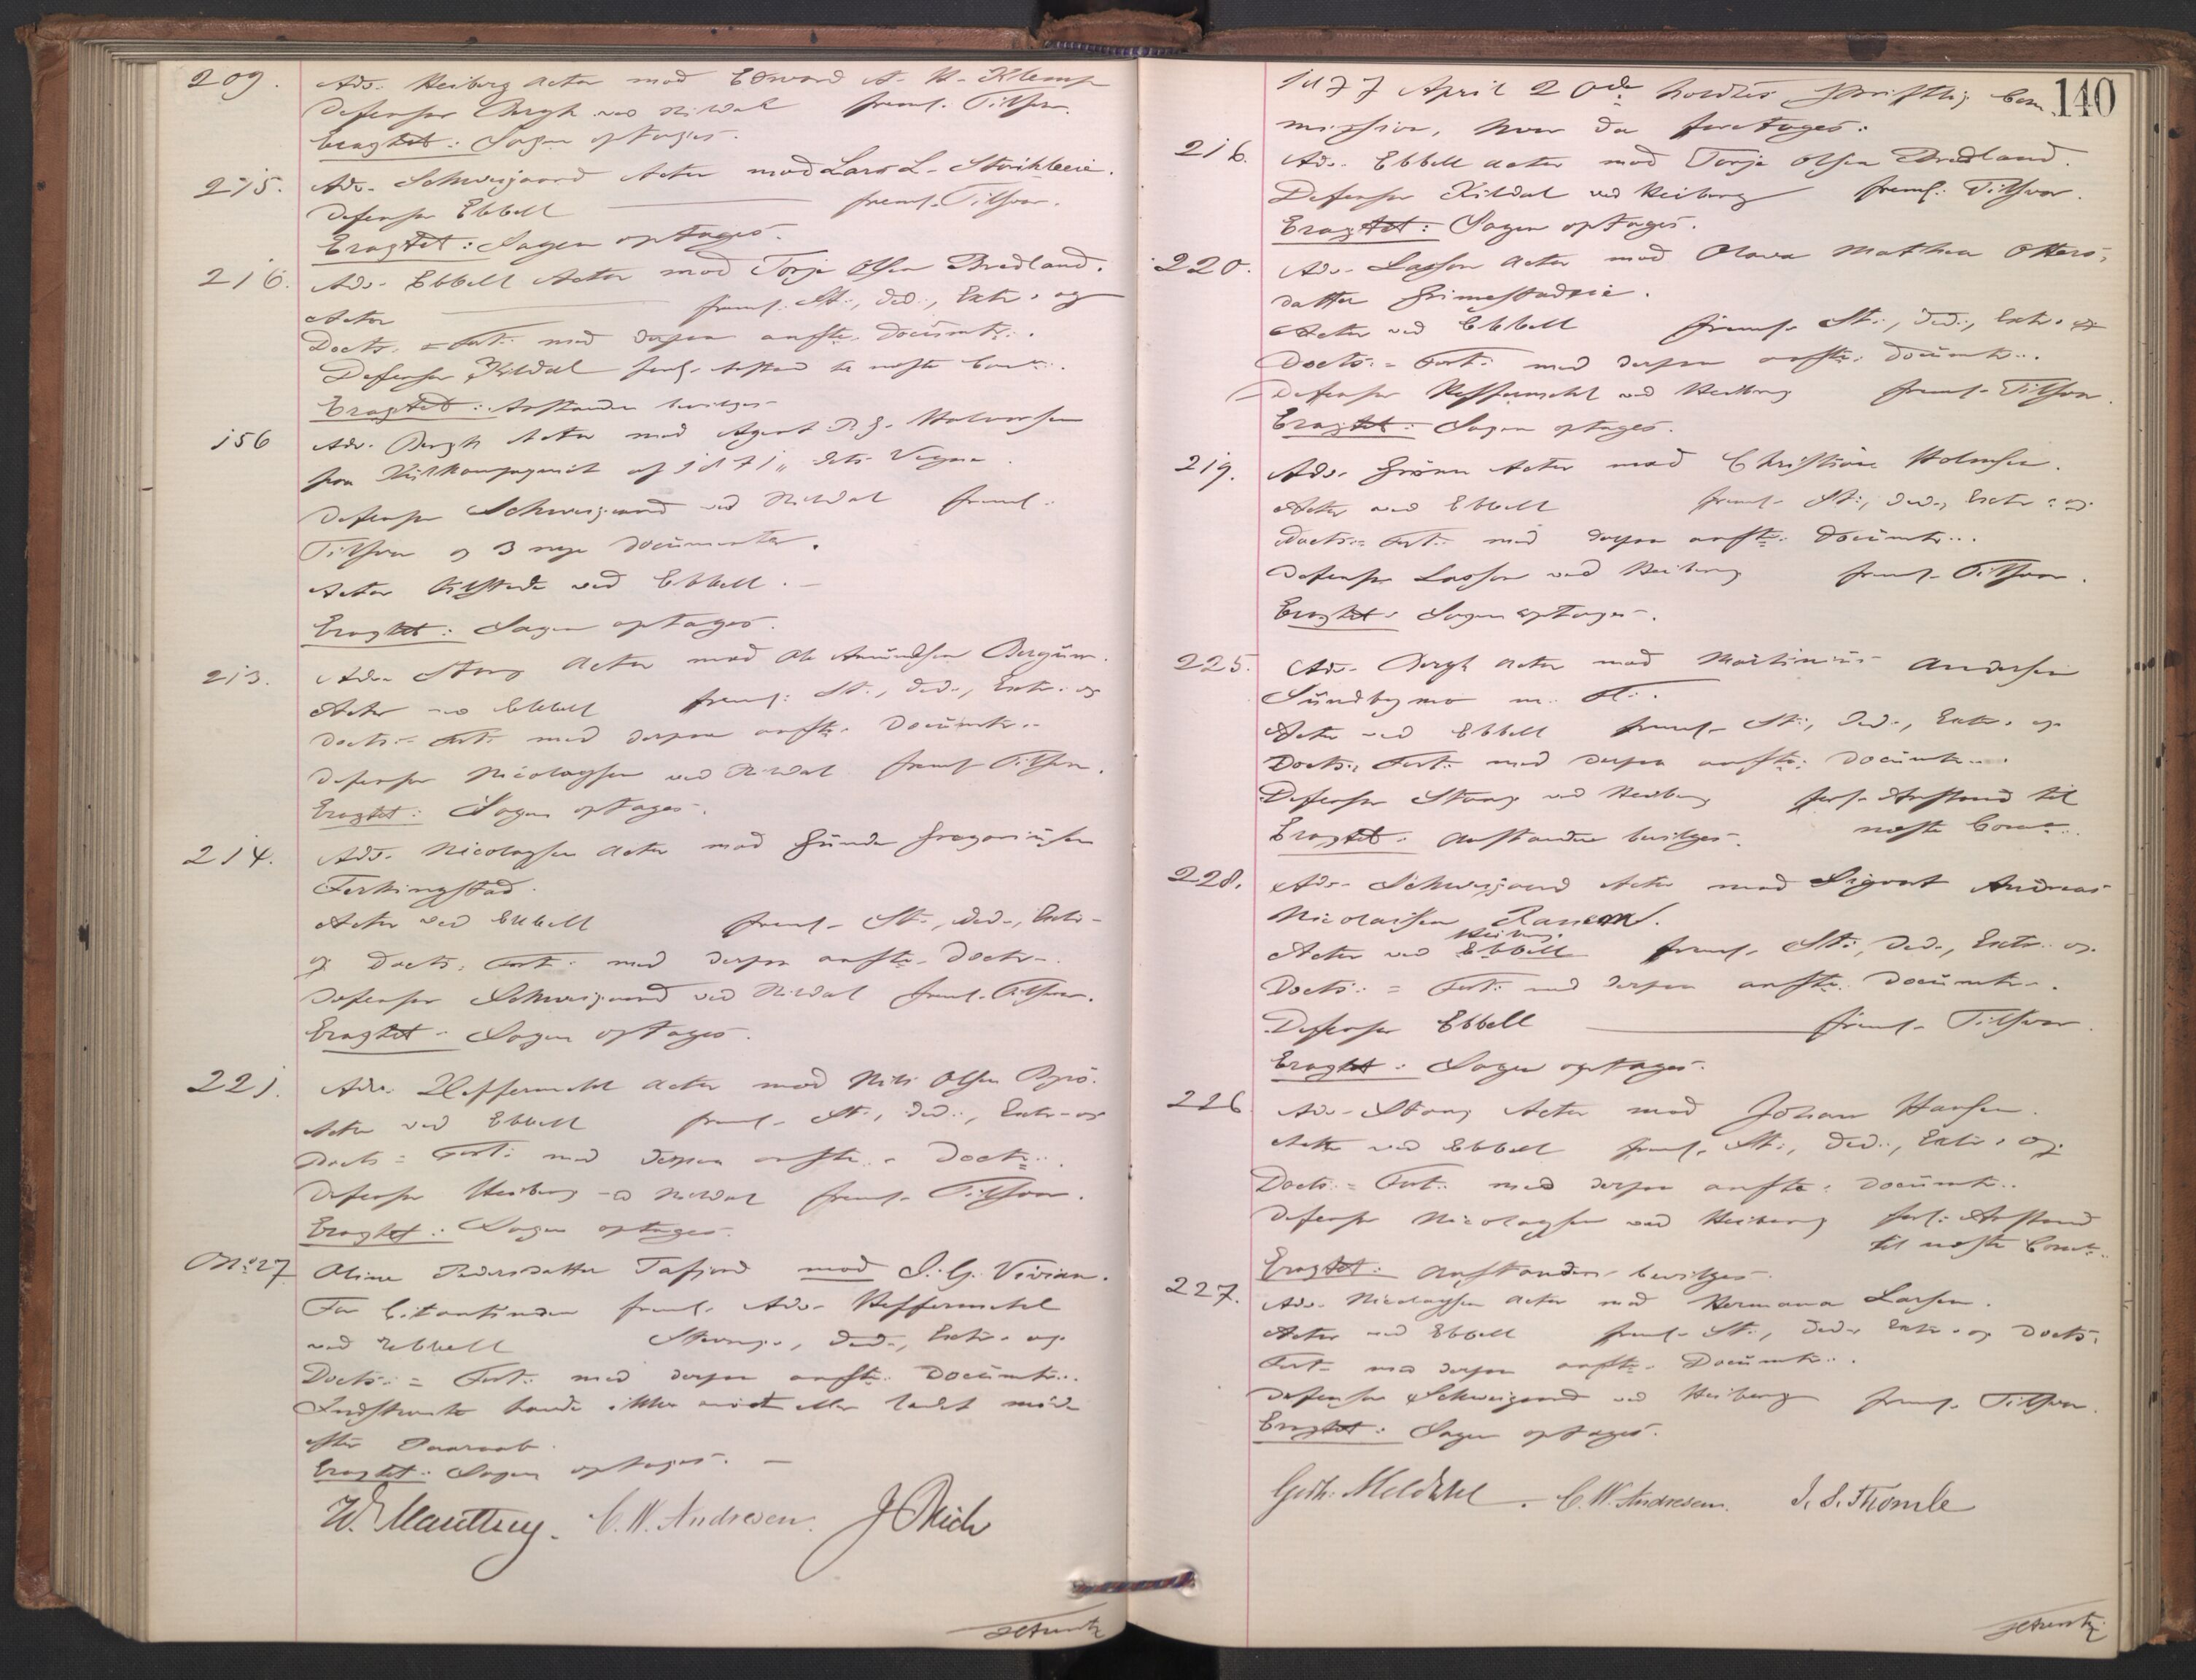 209. Adv. Heiberg Actor mod Edvard A. H. Klemp
Defensor Bergh ved Kildal freml. Tilsvar.
Eragtet: Sagen optages.
215. Adv. Schweigaard Actor mod Lars L.
Defensor Ebbell freml. Tilsvar.
Eragtet: Sagen optages.
216. Adv. Ebbell Actor mod Torje Olsen Bredland.
Actor freml. St:, Ded:, Extr. og
Docts. = Fort: med derpaa anfte. Documtr.
Defensor Kildal forl. Anstand til næste Com:
Eragtet: Anstanden bevilges.
156 Adv. Bergh Actor mod Agent P. G. Halvorsen
for af 1871 " dets Vegne.
Defensor Schweigaard ved Kildal freml.
Tilsvar og 3 nye Documenter.
Actor tilstede ved Ebbell. –
Eragtet: Sagen optages.
213. Adv. Stang Actor mod Ole Amundsen Bergum.
Actor ved Ebbell freml: St., Ded., Extr. og
Docts. = Fort: med derpaa anfte. Documtr.
Defensor Nicolaysen ved Kildal freml. Tilsvar.
Eragtet: Sagen optages.
214. Adv. Nicolaysen Actor mod Gunder Gregoriussen
Ferkingstad.
Actor ved Ebbell freml. St., Ded., Extr.
og Docts. Fort: med derpaa anfte. Doctr.
Defensor Schweigaard ved Kildal freml. Tilsvar.
Eragtet: Sagen optages.
221. Adv. Heffermehl Actor mod Nils Olsen Byrø.
Actor ved Ebbell freml. St:, Ded:, Extr. og
Docts = Fort: med derpaa anfte. Doctr.
Defensor Heiberg ved Kildal freml. Tilsvar.
Eragtet: Sagen optages.
No 27 Oline Pedersdatter Tafjord mod J. G. Vivian.
For Citantinden freml. Adv. Heffermehl
ved Ebbell Stevng., Ded., Extr. og
Docts: = Fort: med derpaa anfte. Documtr.
Indstevnte havde ikke mødt eller ladet møde
efter Paaraab.
Eragtet: Sagen optages. –
C. W. Andresen. J. Mich
1877 April 20de holdtes skriftlig Com 140
mission, hvor da foretoges:
216. Adv. Ebbell Actor mod Torje Olsen Bredland.
Defensor Kildal ved Heiberg freml. Tilsvar.
Eragtet: Sagen optages.
220. Adv. Lasson Actor mod Olava Mathea Otters-
datter Grimestadeie.
Actor ved Ebbell freml. St:, Ded., Extr. og
Docts: = Fort: med derpaa anfte. Documtr.
Defensor Heffermehl ved Heiberg freml. Tilsvar.
Eragtet: Sagen optages.
219. Adv. Grønn Actor mod Christiane Holmsen.
Actor ved Ebbell freml. St:, Ded., Extr. og
Docts: = Fort: med derpaa anfte. Documtr.
Defensor Lasson ved Heiberg freml. Tilsvar.
Eragtet: Sagen optages.
225. Adv. Bergh Actor mod Martinius Andersen
Sundbymo m. Fl:.
Actor ved Ebbell freml. St:, Ded., Extr. og
Docts: Fort: med derpaa anfte: Documtr.
Defensor Stang ved Heiberg forl. Anstand til
Eragtet: Anstanden bevilges. næste Com:
228. Adv. Schweigaard Actor mod Sigvart Andreas
Nicolaisen
Heiberg
Actor ved Ebbell freml. St:, Ded., Extr. og
Docts: = Fort: med derpaa anfte. Documtr.
Defensor Ebbell freml. Tilsvar.
Eragtet: Sagen optages.
226 Adv. Stang Actor mod Johan Hansen.
Actor ved Ebbell freml. St:, Ded:, Extr. og
Docts: = Fort: med derpaa anfte. Documtr.
Defensor Nicolaysen ved Heiberg forl: Anstand
til næste Com:
Eragtet: Anstanden bevilges.
227. Adv. Nicolaysen Actor mod Hermana Larsen.
Actor ved Ebbell freml. St:, Ded., Extr. og Docts.
Fort. med derpaa anfte. Documtr.
Defensor Schweigaard ved Heiberg freml. Tilsvar.
Eragtet: Sagen optages.
C. W. Andresen. J. S. Thomle